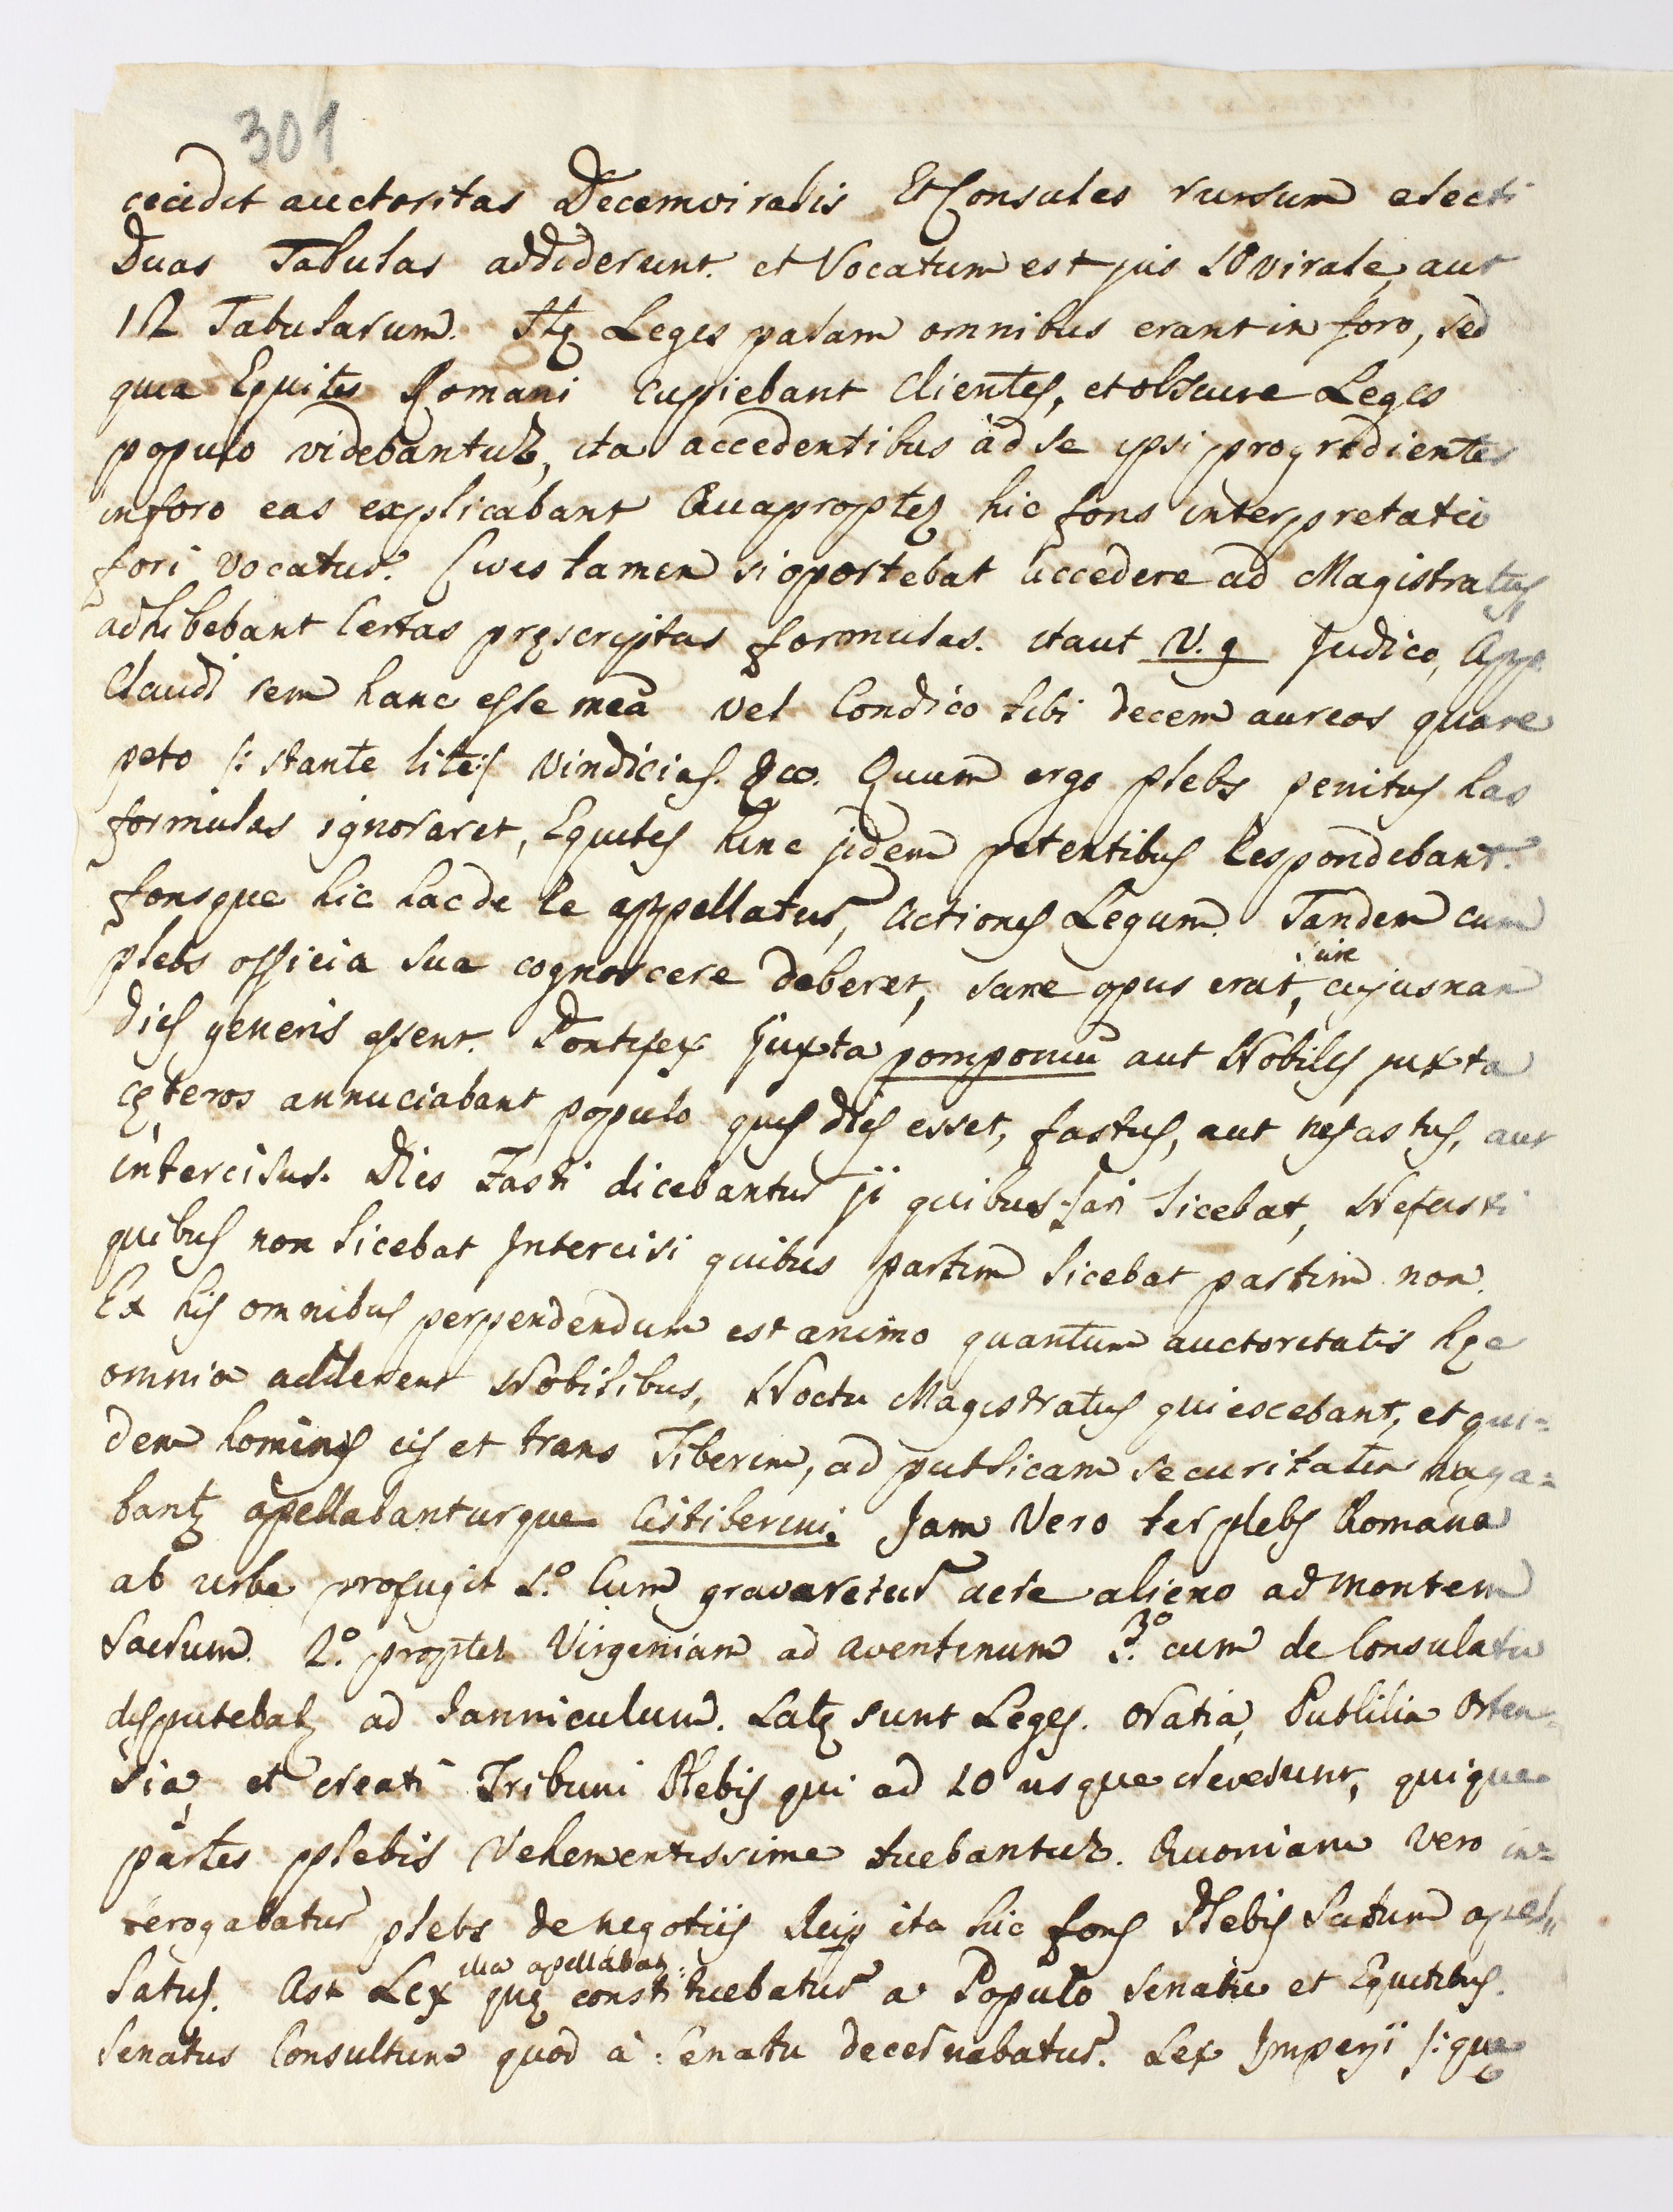 301
cecidit auctoritas Decemviralis Et Consules rursum electi
Duas Tabulas addiderunt. et Vocatum est jus 10 virale, aut
12 Tabularum. Hę Leges palam omnibus erant in foro, sed
quia Equites Romani cupiebant Clientes, et obscure Leges
populo videbantur, ita accedentibus ad se ipsi progredientes
in foro eas explicabant Quapropter hic fons interpretatio
fori vocatur. Cives tamen si oportebat accedere ad Magistratus
adhibebant Certas pręscriptas formulas. ita ut V. g Judico, App.
Claudi rem hanc esse meã vel Condico tibi decem aureos quare
peto /: stante lite :/ vindicias. &c. Quum ergo plebs penitus has
formulas ignoraret, Equites hinc jidem petentibus Respondebant.
fonsque hic hac de Re appellatur, Actiones Legum. Tandem cum
plebs officia sua cognoscere deberet, sane opus erat, scire cujusnam
dies generis essent. Pontifex juxta pomponiũ aut Nobiles juxta
cęteros annuciabant populo quis dies esset, fastus, aut nefastus, aut
intercisus. Dies Fasti dicebantur ji quibus fari licebat, Nefasti
quibus non licebat Intercisi quibus partim licebat partim non.
Ex his omnibus perpendendum est animo quantum auctoritatis hęc
omnia adderent Nobilibus, Noctu Magistratus quiescebant, et qui=
dem homines cis et trans Tiberim, ad publicam securitatem vaga=
bantr apellabanturque Cistiberini. Jam Vero ter plebs Romana
ab urbe profugit 1.o Cum gravaretur aere alieno ad montem
Sacrum. 2.o propter Virginiam ad aventinum 3.o cum de Consulatu
disputebatr ad Janniculum. Latę sunt Leges. Oratia, Publilia Orten=
sia, et creati Tribuni Plebis qui ad 10 usque creverunt, quique
partes plebis Vehementissime tuebantur. Quoniam vero in=
terogabatur plebs de negotiis Reip ita hic fons Plebis Scitum apel=
latus. Ast Lex illa apellabatr quę constituebatur a Populo Senatu et Equitibus.
Senatus Consultum quod à Senatu decernabatur. Lex Imperji /: que